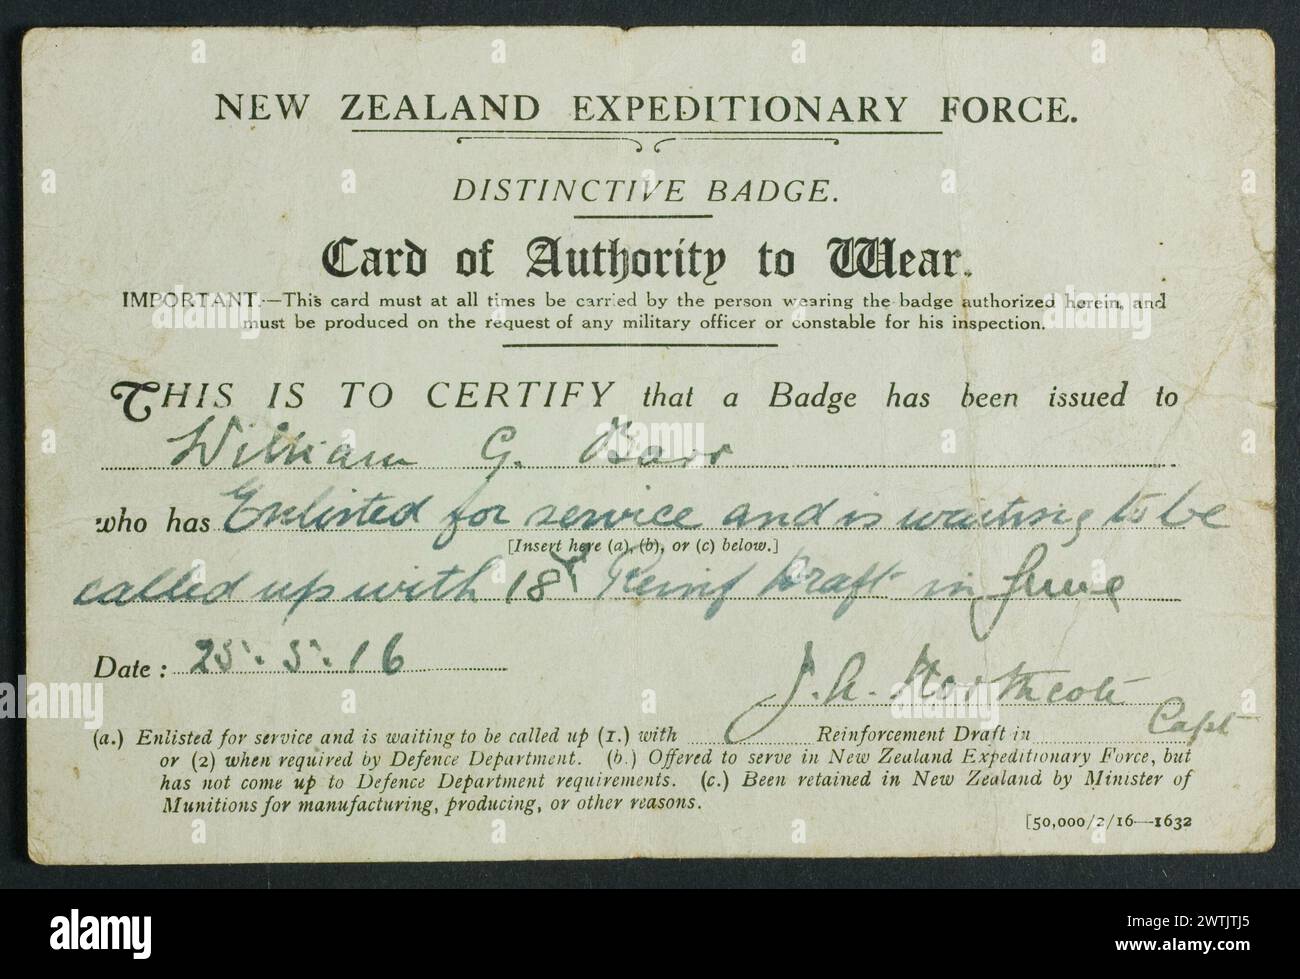 NEW ZEALAND EXPEDITIONARY FORCE.
DISTINCTIVE BADGE.
Card of Authority to Wear.
IMPORTANT.—This card must at all times be carried by the person wearing the badge authorized herein, and
must be produced on the request of any military officer or constable for his inspection.
THIS IS TO CERTIFY that a Badge has been issued to
William G. Barr
who has Enlisted for service and is waiting to be
[Insert here (a), (b), or (c) below.]
called up with 18th Reinf Draft in June
Date: 25.5.16
J. A. Northcote
Capt
(a.) Enlisted for service and is waiting to be called up (1.) with Reinforcement Draft in
or (2) when required by Defence Department. (b.) Offered to serve in New Zealand Expeditionary Force, but
has not come up to Defence Department requirements. (c.) Been retained in New Zealand by Minister of
Munitions for manufacturing, producing, or other reasons.
[50,000/2/16—1632
alamy
Image ID: 2WTJTJ5
www.alamy.com